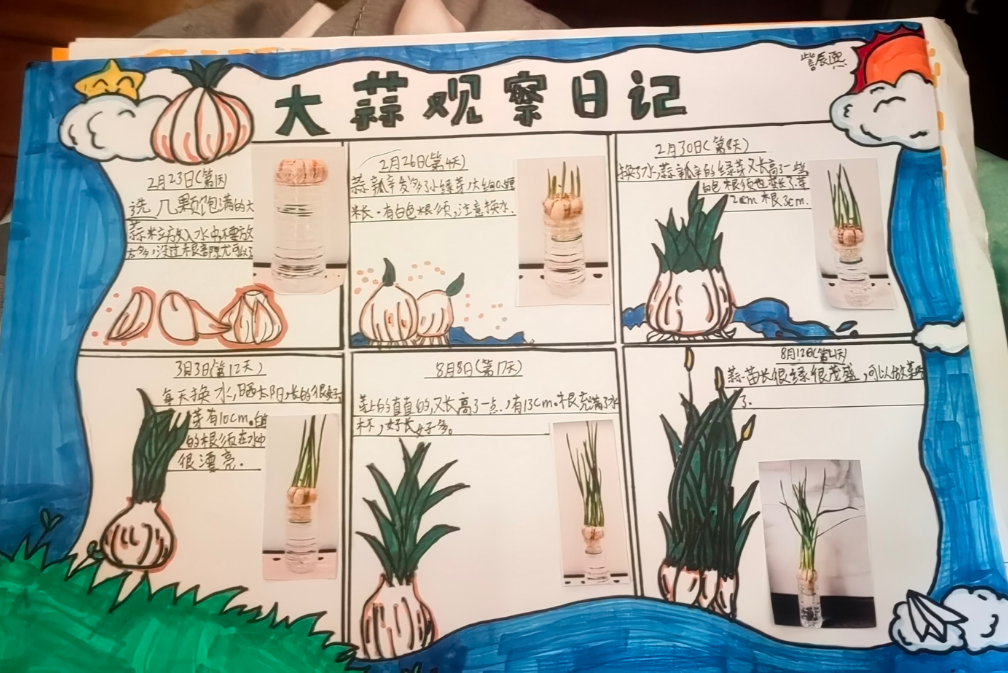 大蒜观察日记
2月23日(第1天)
选几颗饱满的大
蒜
2月26日(第4天)
蒜瓣车发了小绿芽
米长,有白色根须,注意换水.
2月30日(第8天)
换了水,蒜瓣的绿芽又长高了一些
白色根须也变长了,芽
2cm 根3cm.
3月3日(第12天)
每天换水,晒太阳,长的很好
芽有10cm.白色
的根须在水中
很漂亮.
8月8日(第17天)
芽上的直直的,又长高了一点.有13cm.根充满了水
杯,好长好多。
8月12日(第21天)
蒜苗长很绿很茂盛,可以做菜
了.